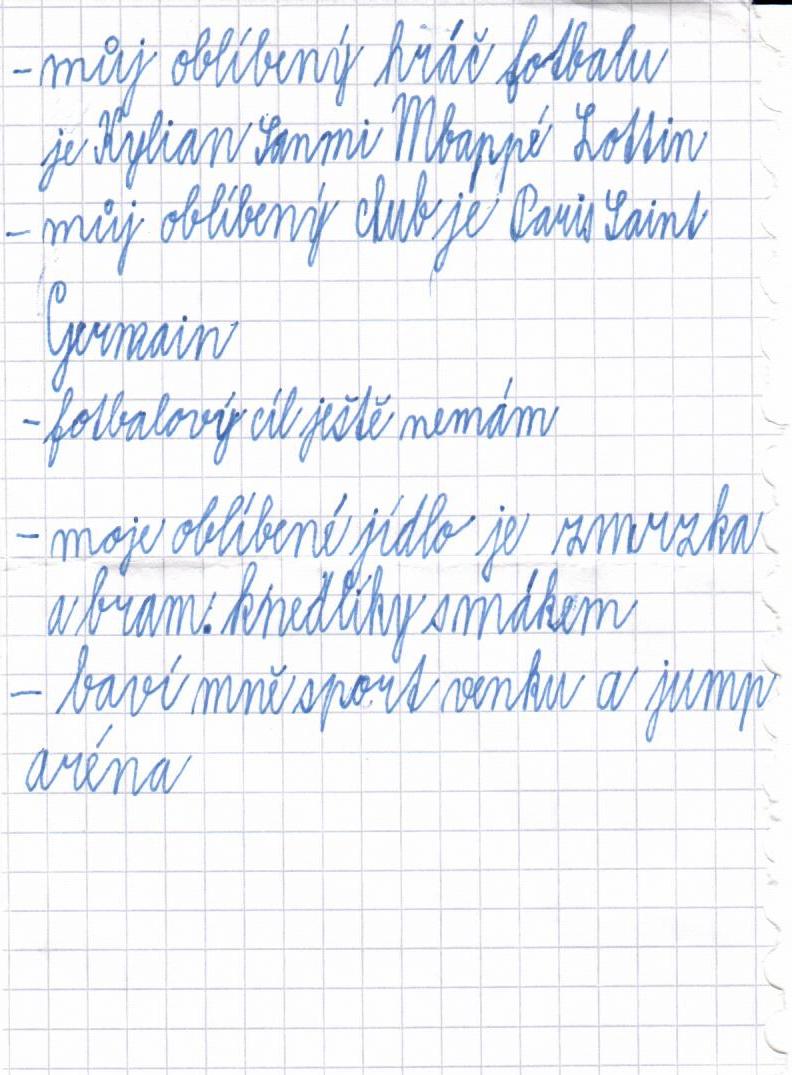 - můj oblíbený hráč fotbalu
je Kylian Sanmi Mbappé Lottin
- můj oblíbený club je Paris Saint
Germain
- fotbalový cíl ještě nemám
- moje oblíbené jídlo je zmrzka
a bram. knedlíky s mákem
- baví mně sport venku a jump
aréna